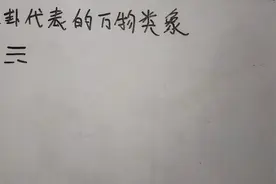 卦代表的万物类象
☴